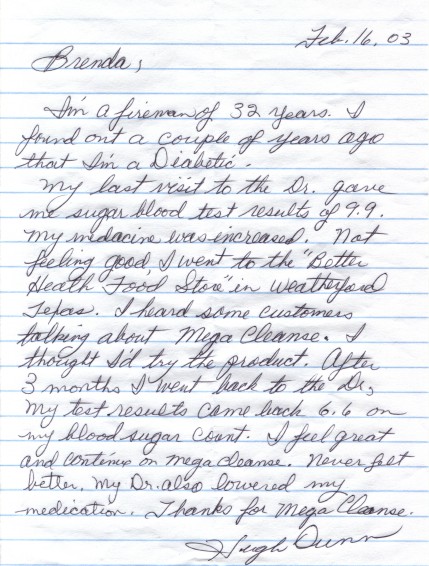 Feb. 16, 03
Brenda,
I'm a fireman of 32 years. I
found out a couple of years ago
that I'm a Diabetic.
My last visit to the Dr. gave
me sugar blood test results of 9.9.
My medacine was increased. Not
feeling good, I went to the "Better
Heath Food Store" in Weatherford
Texas. I heard some customers
talking about Mega Cleanse. I
thought I'd try the product. After
3 months I went back to the Dr,
My test results came back 6.6 on
my blood sugar count. I feel great
and continue on mega cleanse. Never felt
better. My Dr. also lowered my
medication. Thanks for Mega Cleanse.
Hugh Dunn